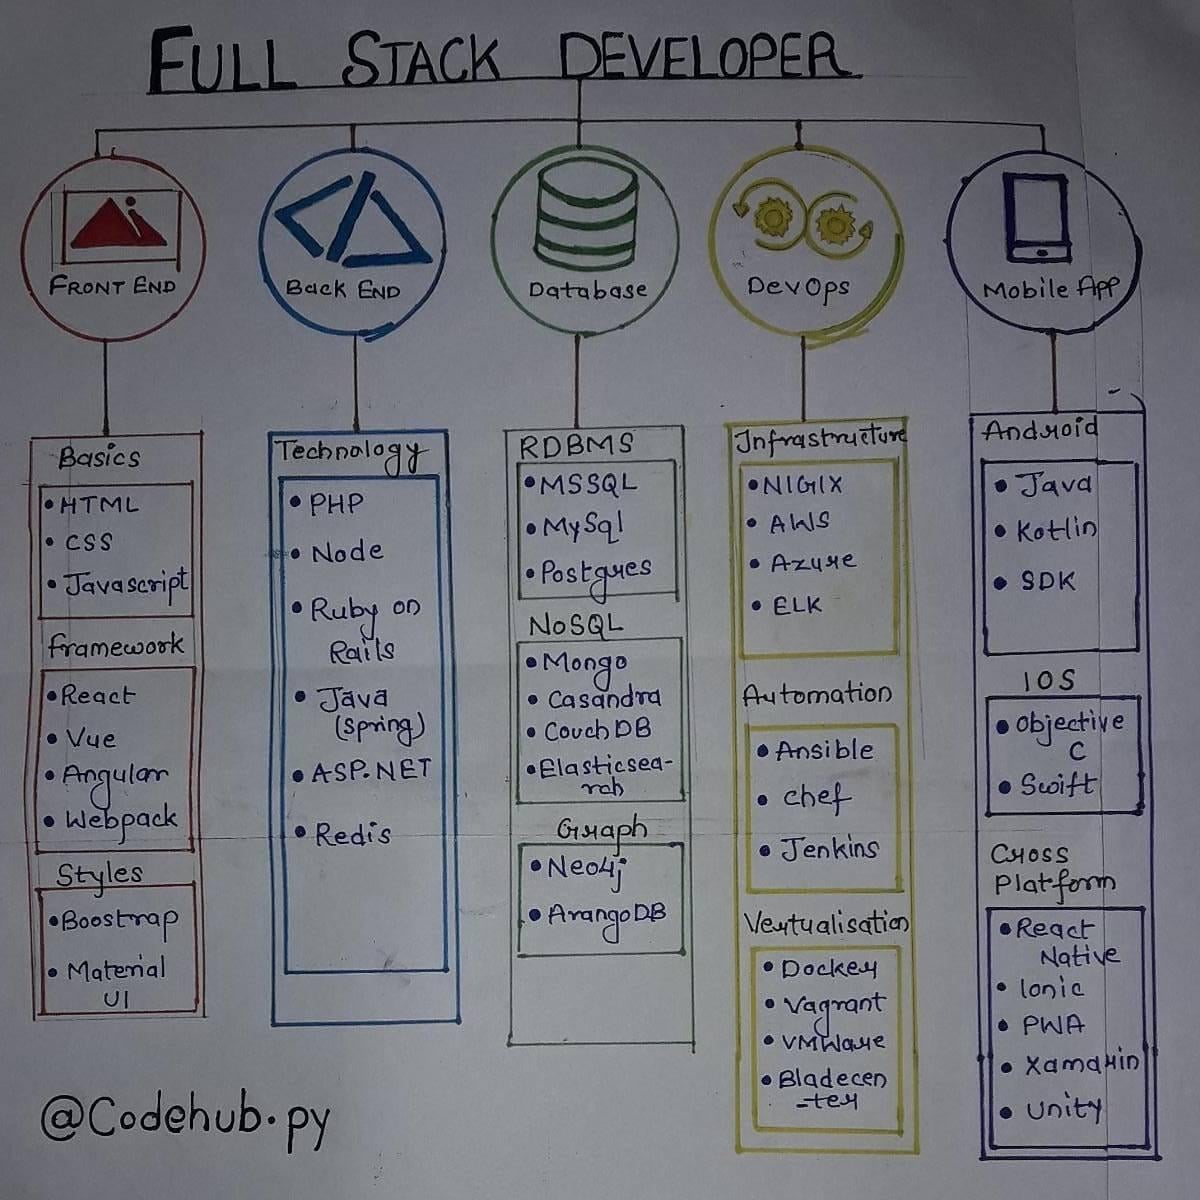 FULL STACK DEVELOPER
FRONT END
Back END
Database
DevOps
Mobile App
Basics
• HTML
• CSS
• Javascript
framework
• React
• Vue
• Angular
• Webpack
Styles
• Boostrap
• Material
UI
Technology
• PHP
• Node
• Ruby on
Rails
• Java
(spring)
• ASP.NET
• Redis
RDBMS
• MSSQL
• MySql
• Postgres
NoSQL
• Mongo
• Casandra
• CouchDB
• Elasticsea-
rch
Graph
• Neo4j
• ArangoDB
Infrastructure
• NIGIX
• AWS
• Azure
• ELK
Automation
• Ansible
• chef
• Jenkins
Vertualisation
• Docker
• Vagrant
• VMWare
• Bladecen
-ter
Android
• Java
• Kotlin
• SDK
IOS
• Objective
C
• Swift
Cross
Platform
• React
Native
• Ionic
• PWA
• Xamarin
• Unity
@Codehub.py